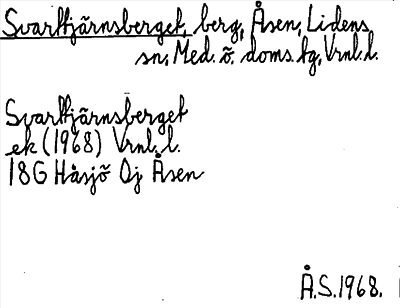 Svarttjärnsberget, berg, Åsen, Lidens
sn, Med. ö. doms. tg, Vrnl. l.
Svarttjärnsberget
ek (1968) Vrnl. l.
18G Håsjö Oj Åsen
Å.S. 1968.